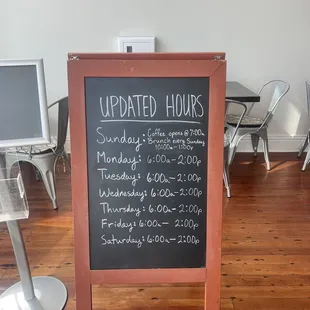 UPDATED HOURS
Sunday: Coffee opens @ 7:00
Brunch every Sunday
10:00a-1:00p
Monday: 6:00a-2:00p
Tuesday: 6:00a-2:00p
Wednesday: 6:00a-2:00p
Thursday: 6:00a-2:00p
Friday: 6:00a-2:00p
Saturday: 6:00a-2:00p